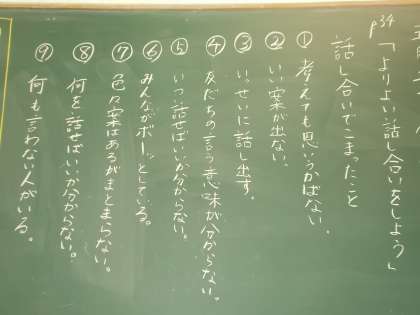 p34「よりよい話し合いをしよう」
話し合いでこまったこと
①考えても思いうかばない。
②いい案が出ない。
③いっせいに話し出す。
④友だちの言う意味が分からない。
⑤いつ話せばいいか分からない。
⑥みんながボーッとしている。
⑦色々案はあるがまとまらない。
⑧何を話せばいいか分からない。
⑨何も言わない人がいる。